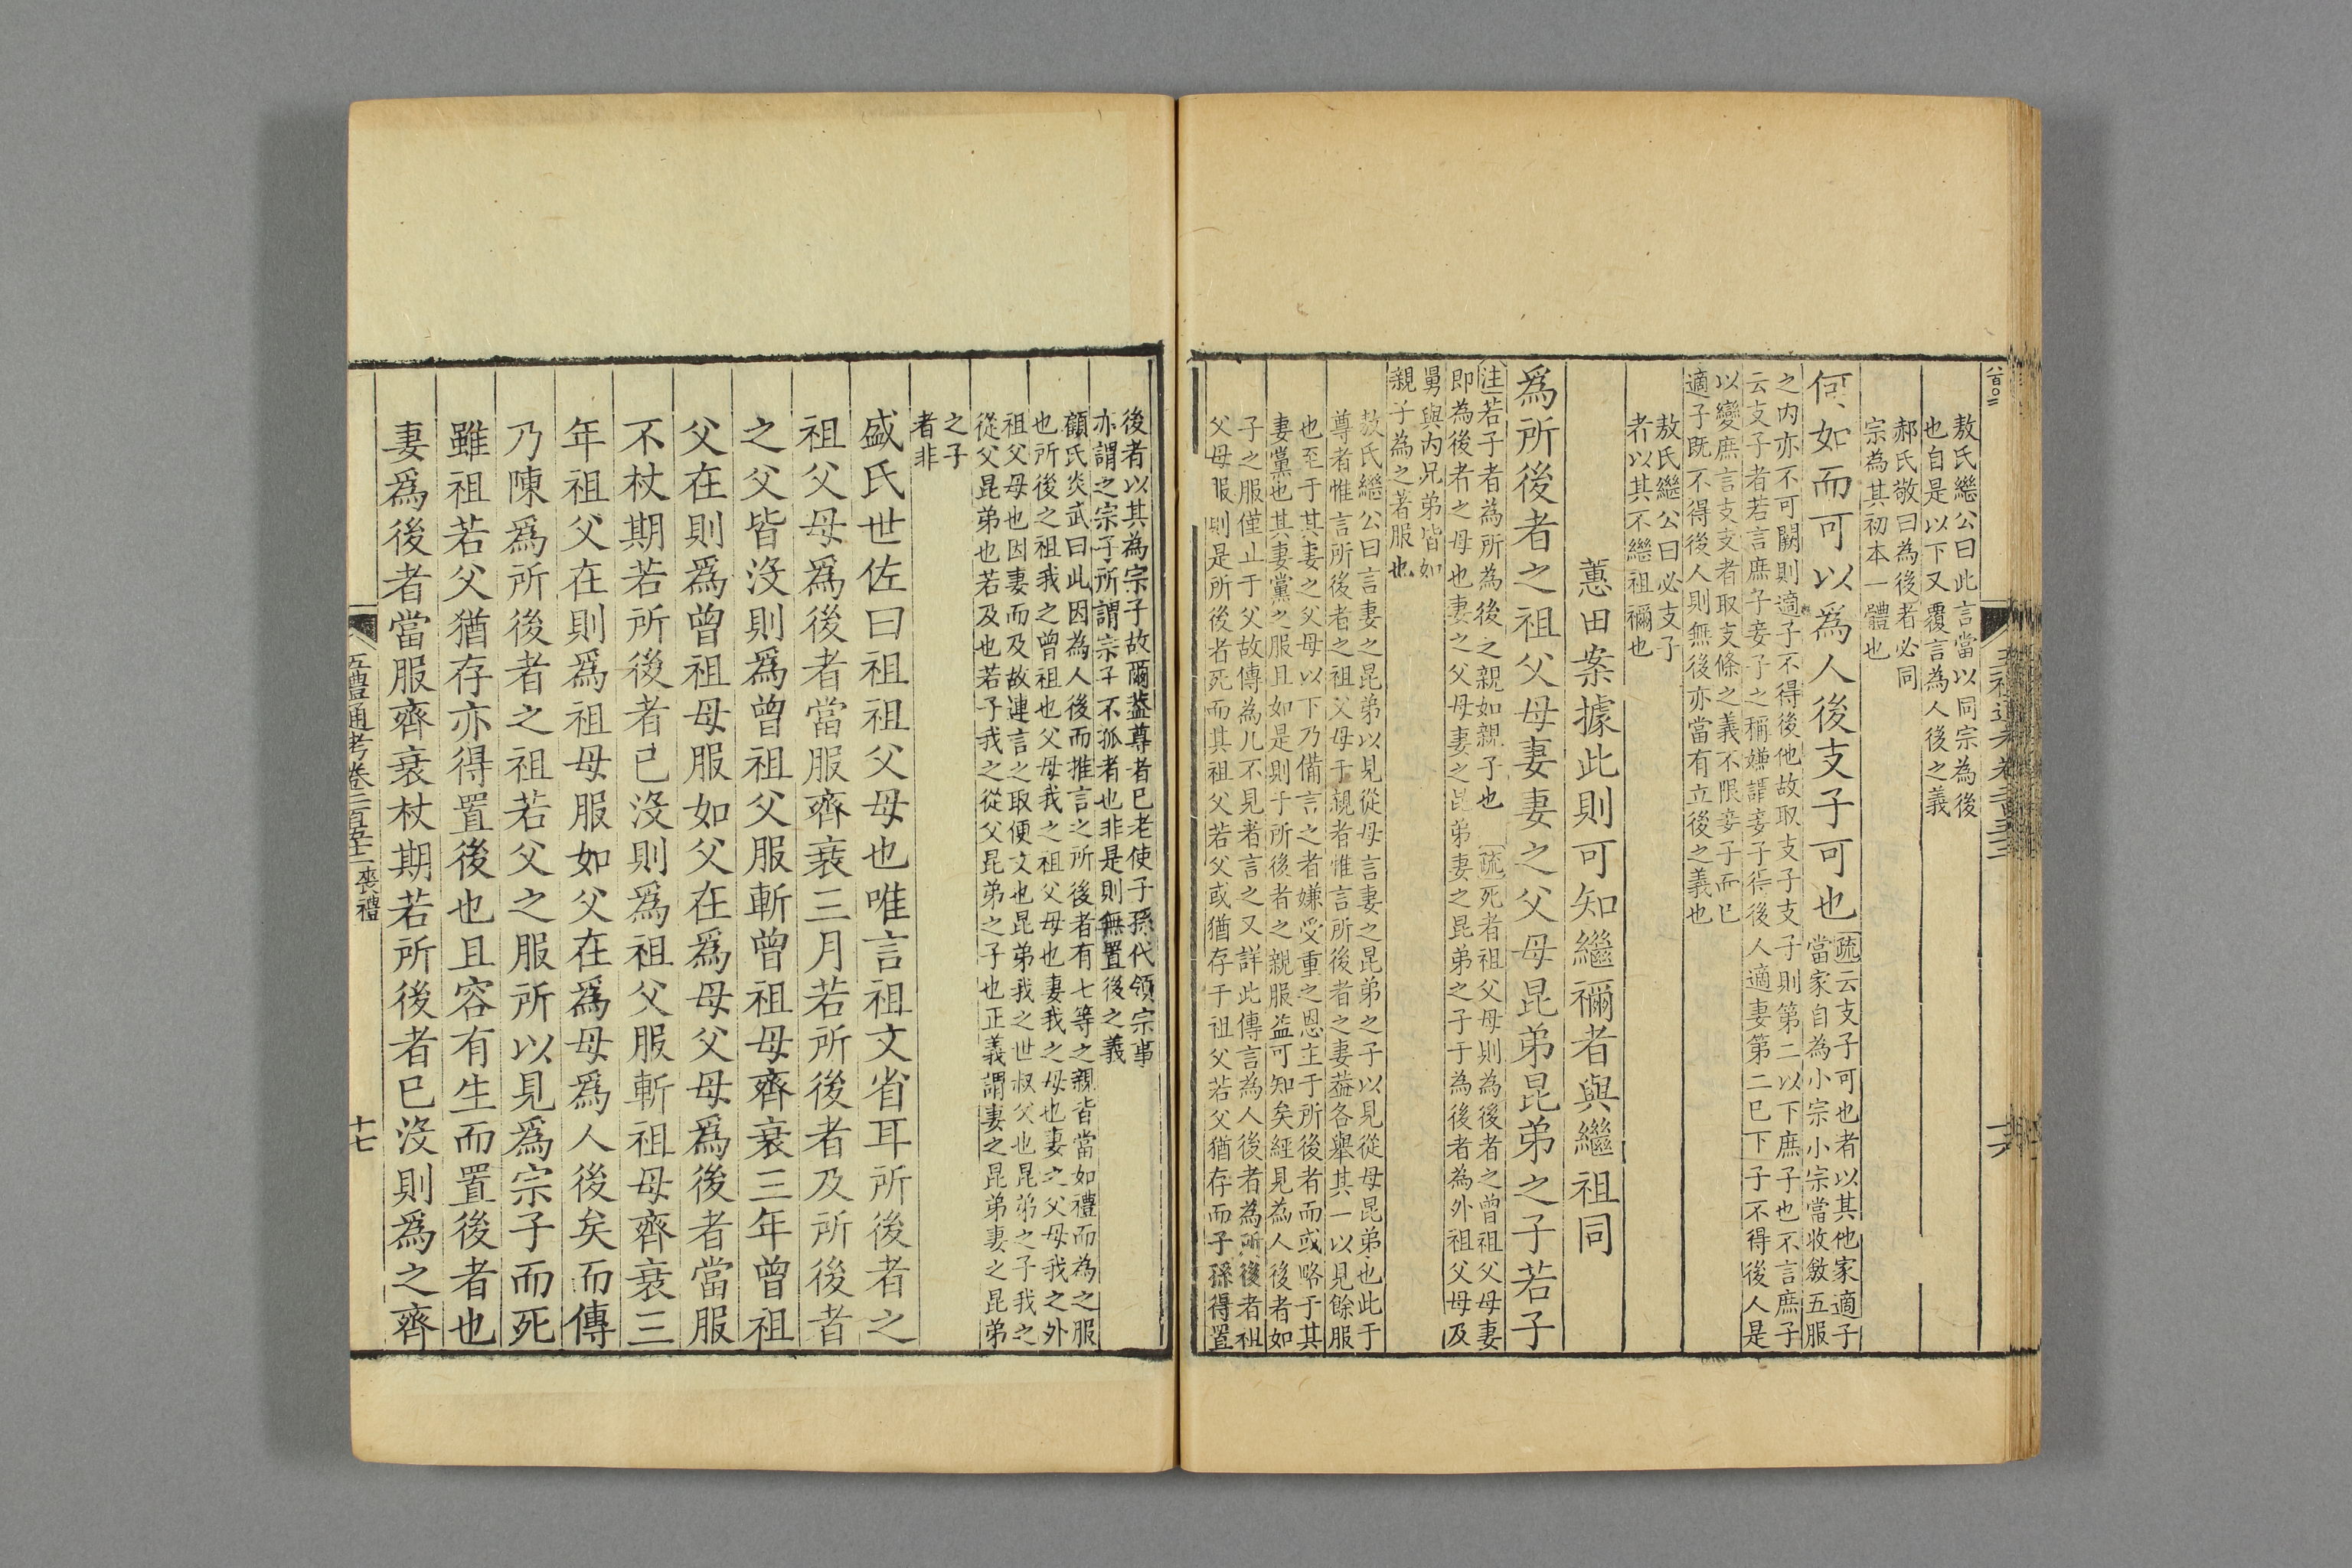 敖氏繼公曰此言當以同宗為後
也自是以下又覆言為人後之義
郝氏敬曰為後者必同
宗為其初本一體也
何如而可以爲人後支子可也
疏云支子可也者以其他家適子
當家自為小宗小宗當收斂五服
之内亦不可闕則適子不得後他故取支子支子則第二以下庶子也不言庶子
云支子者若言庶子妾子之稱嫌謂妾子得後人適妻第二已下子不得後人是
以變庶言支支者取支條之義不限妾子而已
適子既不得後人則無後亦當有立後之義也
敖氏繼公曰必支子
者以其不繼祖禰也
蕙田案據此則可知繼禰者與繼祖同
爲所後者之祖父母妻妻之父母昆弟昆弟之子若子
注若子者為所為後之親如親子也 疏死者祖父母則為後者之曾祖父母妻
即為後者之母也妻之父母妻之昆弟妻之昆弟之子于為後者為外祖父母及
舅與内兄弟皆如
親子為之著服也
敖氏繼公曰言妻之昆弟以見從母言妻之昆弟之子以見從母昆弟也此于
尊者惟言所後者之祖父母于親者惟言所後者之妻葢各舉其一以見餘服
也至于其妻之父母以下乃備言之者嫌受重之恩主于所後者而或略于其
妻黨也其妻黨之服且如是則于所後者之親服益可知矣經見為人後者如
子之服僅止于父故傳為凡不見者言之又詳此傳言為人後者為所後者祖
父母服則是所後者死而其祖父若父或猶存于祖父若父猶存而子孫得置
後者以其為宗子故爾葢尊者已老使子孫代領宗事
亦謂之宗子所謂宗子不孤者也非是則無置後之義
顧氏炎武曰此因為人後而推言之所後者有七等之親皆當如禮而為之服
也所後之祖我之曾祖也父母我之祖父母也妻我之母也妻之父母我之外
祖父母也因妻而及故連言之取便文也昆弟我之世叔父也昆弟之子我之
從父昆弟也若及也若子我之從父昆弟之子也正義謂妻之昆弟妻之昆弟
之子
者非
盛氏世佐曰祖祖父母也唯言祖文省耳所後者之
祖父母爲後者當服齊衰三月若所後者及所後者
之父皆沒則爲曾祖父服斬曾祖母齊衰三年曾祖
父在則爲曾祖母服如父在爲母父母爲後者當服
不杖期若所後者已沒則爲祖父服斬祖母齊衰三
年祖父在則爲祖母服如父在爲母爲人後矣而傳
乃陳爲所後者之祖若父之服所以見爲宗子而死
雖祖若父猶存亦得置後也且容有生而置後者也
妻爲後者當服齊衰杖期若所後者已沒則爲之齊
五禮通考卷二百五十二喪禮
十七